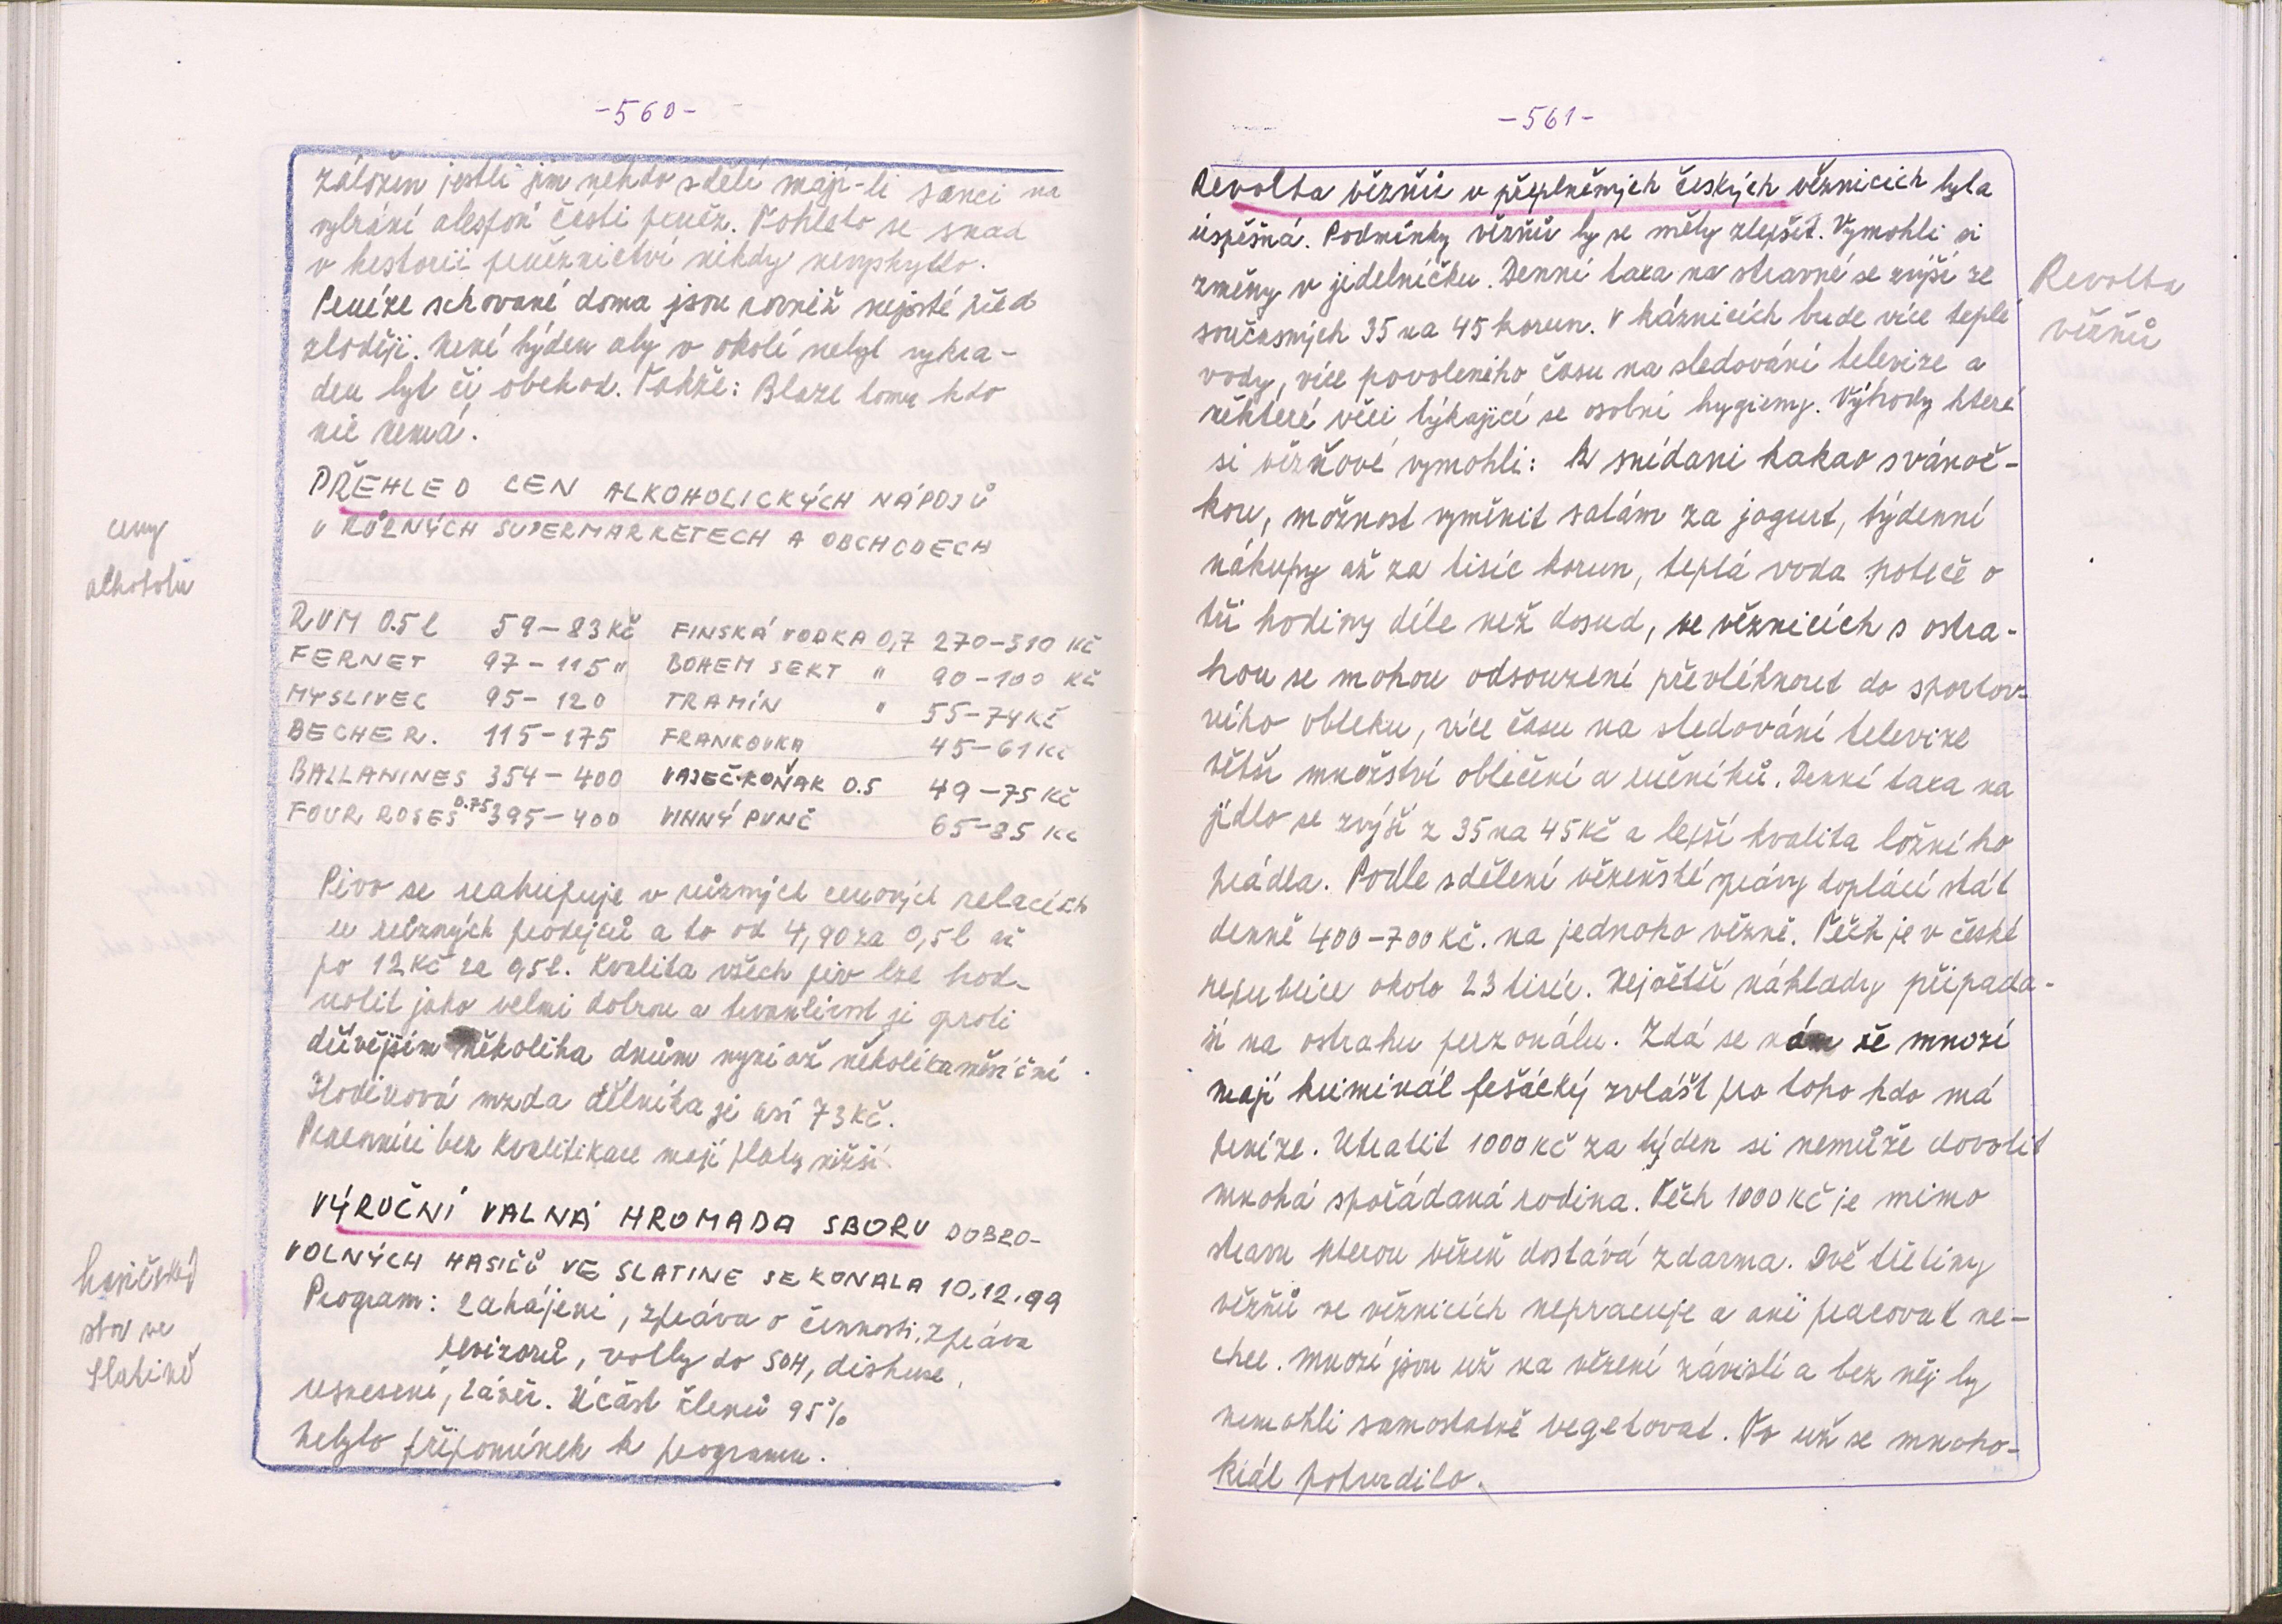 -560-
záložen jestli jim někdo sdělí mají-li šanci na
vybrání alespoň části peněz. Tohleto se snad
v historii peněžnictví nikdy nevyskytlo.
Peníze schované doma jsou rovněž nejisté před
zloději. Není týden aby v okolí nebyl vykra-
den byt či obchod. Takže: Blaze tomu kdo
nic nemá.
PŘEHLED CEN ALKOHOLICKÝCH NÁPOJŮ
V RŮZNÝCH SUPERMARKETECH A OBCHODECH
ceny
alkoholu
RUM 0.5 l 59-83 Kč FINSKÁ VODKA 0,7 270-310 Kč
FERNET 97-115 " BOHEM SEKT " 90-100 Kč
MYSLIVEC 95-120 TRAMÍN " 55-74 Kč
BECHER. 115-175 FRANKOVKA 45-61 Kč
BALLANINES 354-400 VAJEČ.KOŇAK 0.5 49-75 Kč
FOUR ROSES 0.75 395-400 VINNÝ PUNČ 65-85 Kč
Pivo se nakupuje v různých cenových relacích
u různých prodejců a to od 4,90 za 0,5 l až
po 12 Kč za 0,5 l. Kvalita všech piv lze hod-
notit jako velmi dobrou a trvanlivost je proti
dřívějším několika dnům nyní až několikaměsíční.
Hodinová mzda dělníka je asi 73 Kč.
Pracovníci bez kvalifikace mají platy nižší.
VÝROČNÍ VALNÁ HROMADA SBORU DOBRO-
VOLNÝCH HASIČŮ VE SLATINE SE KONALA 10.12.99
Program: Zahájení, zpráva o činnosti, zpráva
revizorů, volby do SDH, diskuse,
usnesení, závěr. Účast členů 95%
Nebylo připomínek k programu.
hasičský
sbor ve
Slatině
-561-
Revolta vězňů v přeplněných českých věznicích byla
úspěšná. Podmínky vězňů by se měly zlepšit. Vymohli si
změny v jídelníčku. Denní taxa na stravné se zvýší ze
současných 35 na 45 korun. V káznicích bude více teplé
vody, více povoleného času na sledování televize a
některé věci týkající se osobní hygieny. Výhody které
si vězňové vymohli: K snídani kakao s vánoč-
kou, možnost vyměnit salám za jogurt, týdenní
nákupy až za tisíc korun, teplá voda poteče o
tři hodiny déle než dosud, ve věznicích s ostra-
hou se mohou odsouzení převléknout do sportov-
ního obleku, více času na sledování televize
větší množství oblečení a ručníků. Denní taxa na
jídlo se zvýší z 35 na 45 Kč a lepší kvalita ložního
prádla. Podle sdělení vězeňské správy doplácí stát
denně 400-700 Kč. na jednoho vězně. Těch je v české
republice okolo 23 tisíc. Největší náklady připada-
jí na ostrahu perzonálu. Zdá se nám že mnozí
mají kriminál fešácký zvlášť pro toho kdo má
peníze. Utratit 1000 Kč za týden si nemůže dovolit
mnohá spořádaná rodina. Těch 1000 Kč je mimo
stravu kterou vězeň dostává zdarma. Dvě třetiny
vězňů ve věznicích nepracuje a ani pracovat ne-
chce. Mnozí jsou už na vězení závislí a bez něj by
nemohli samostatně vegetovat. To už se mnoho-
krát potvrdilo.
Revolta
vězňů